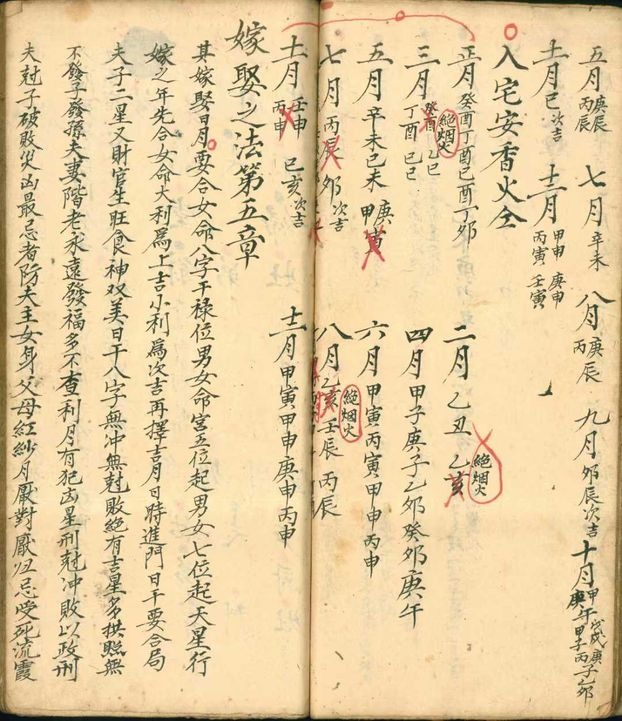 五月 庚辰 丙辰 七月 辛未 八月 庚辰 丙辰 九月 夘辰次吉 十月
十一月 巳次吉 十二月 甲申 庚申 丙寅 壬寅
入宅安香火全
正月 癸酉丁酉己酉丁夘 二月 乙丑 乙亥 絶烟火
三月 癸酉 乙巳 丁酉 己巳 絶烟火 四月 甲子庚子乙夘癸夘庚午
五月 辛未己未 庚寅 甲寅 六月 甲寅丙寅甲申丙申
七月 丙辰 夘次吉 八月 乙亥 壬辰 丙辰 絶烟火
十一月 壬申 丙申 巳亥次吉 十二月 甲寅甲申庚申丙申
嫁娶之法第五章
其嫁娶日月要合女命八字干禄位男女命宮五位起男女七位起天星行
嫁之年先合女命大利爲上吉小利爲次吉再擇吉月日時進門日干要合局
夫子二星又財官生旺食神双美日干八字無冲無尅敗絶有吉星多拱照無
不發子發孫夫妻階老永遠發福多不查利月有犯凶星刑尅冲敗以政刑
夫尅子破敗災凶最忌者防夫主女身父母紅紗月厭對厭四忌受死流霞